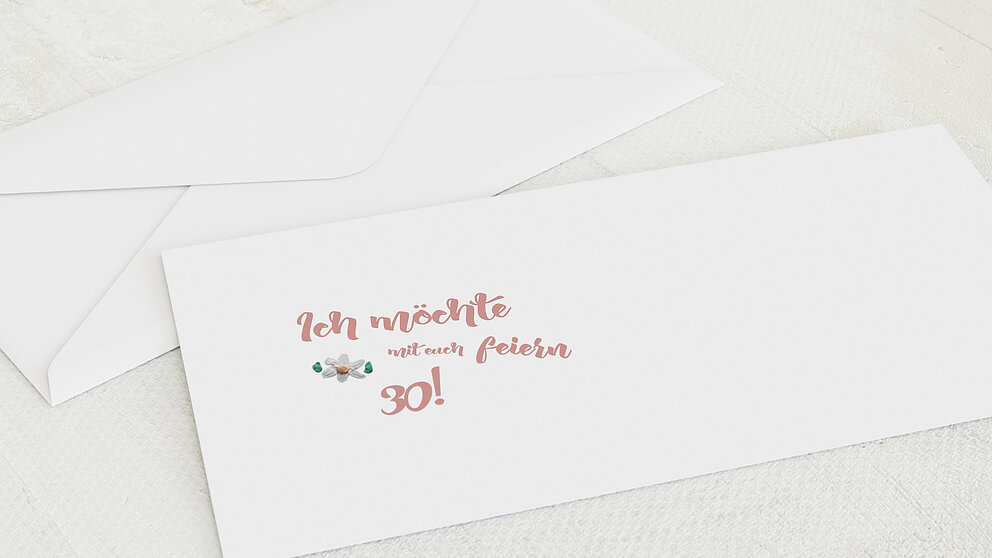 Ich möchte
mit euch feiern
30!